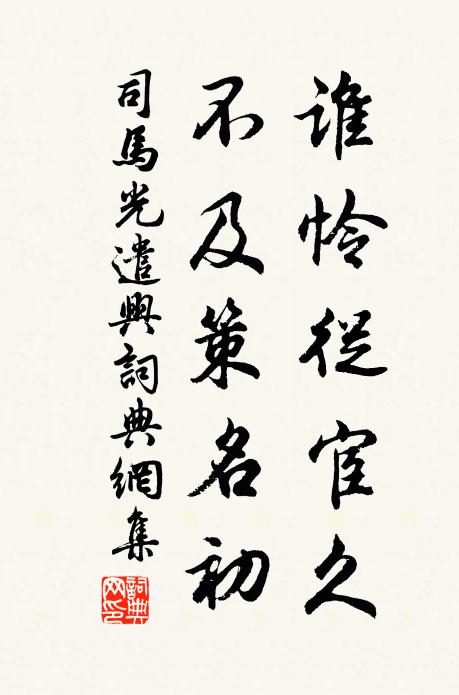 誰憐從宦久
不及策名初
司馬光遣興詞典網集
詞典网印